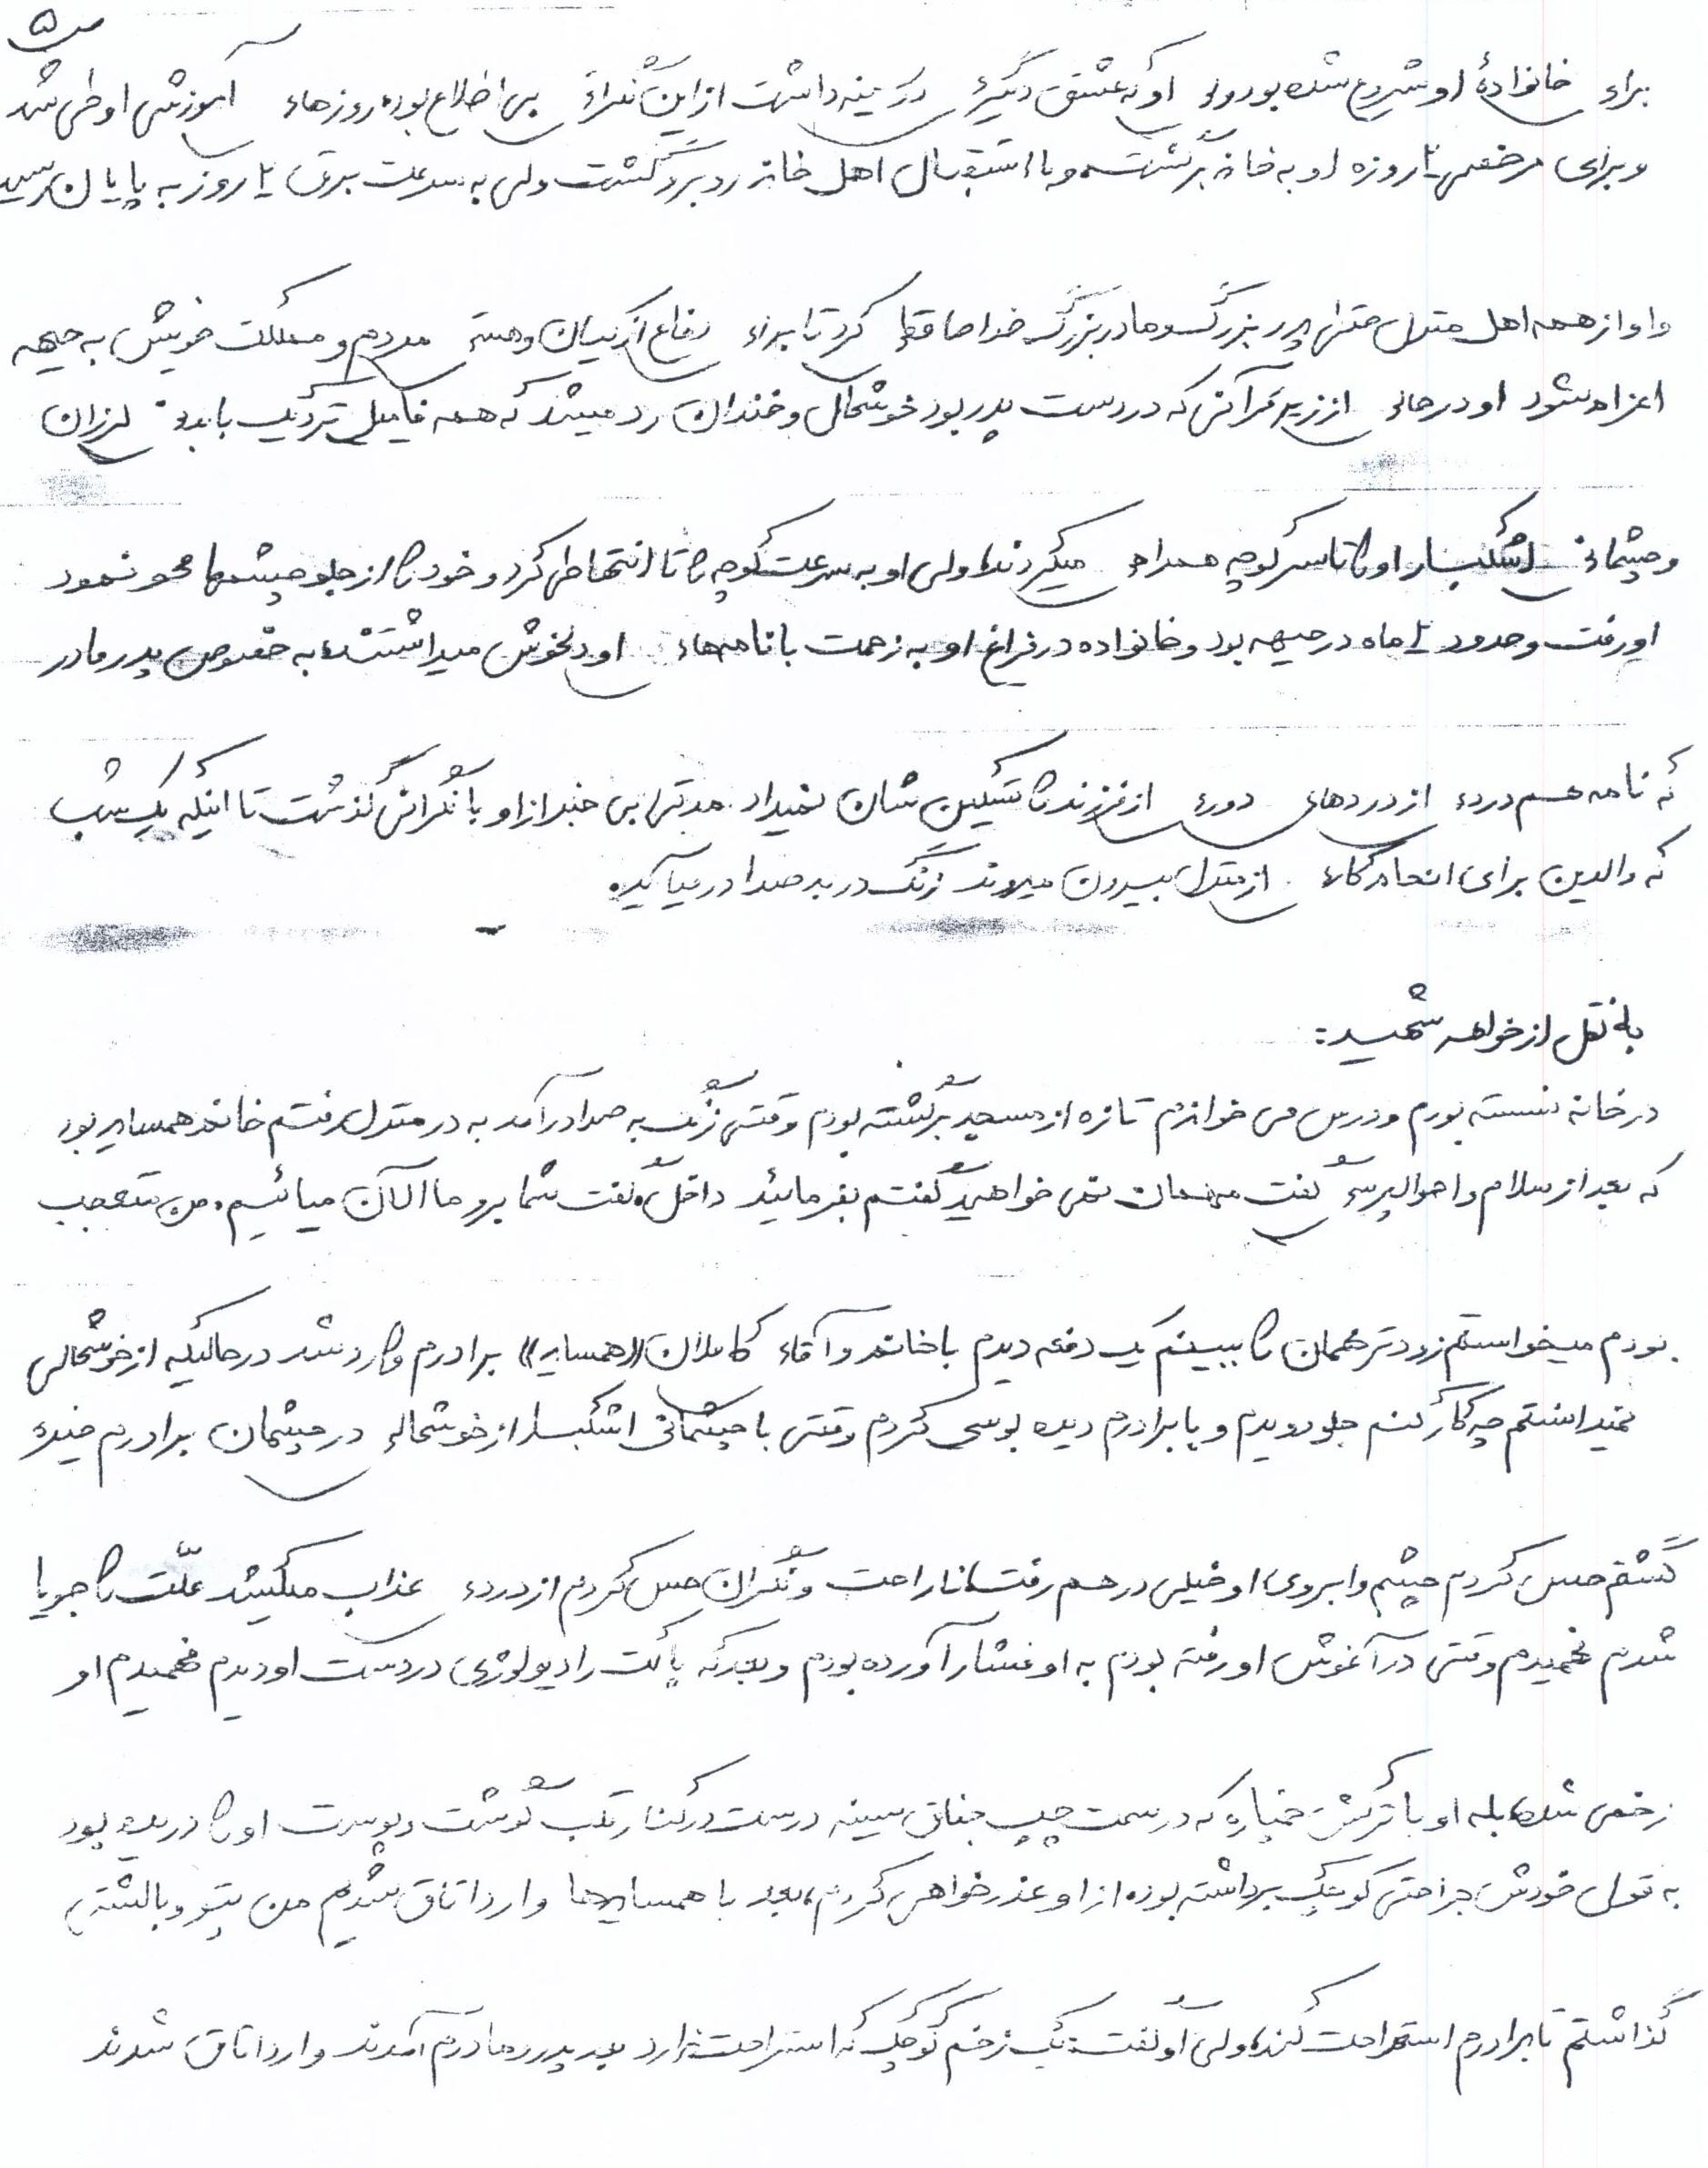 ۵
برای خانوادهٔ او شروع شده بود ولی او که عشق دیگری در سینه داشت از این بی اطلاع بود، روزهای آموزشی او طی شد
و برای مرخصی روزه او به خانه برگشت، و با استقبال اهل خانه رو برو گشت ولی به سرعت برق روز به پایان رسید
و او از همه اهل منزل حتی پدر بزرگ و مادر بزرگ خداحافظی کرد تا برای دفاع از کیان و هستی مردم و مملکت خویش به جبهه
اعزام شود او در حالی از زیر قرآنی که در دست پدر بود خوشحال و خندان رد میشد که همه فامیل نزدیک با بدنی لرزان
و چشمانی اشکبار او را تا سر کوچه همراهی میکردند، ولی او به سرعت کوچه را تا انتها طی کرد و خود را از جلو چشمها محو نمود
او رفت و حدود ماه در جبهه بود و خانواده در فراغ او به زحمت با نامه‌های او دلخوش میداشتند، به خصوص پدر و مادر
که نامه هم دردی از دردهای دوری از فرزند را تسکین شان نمیداد. مدتی بی خبر از او با نگرانی گذشت تا اینکه یک شب
که والدین برای انجام کاری از منزل بیرون میروند زنگ در به صدا در میآید.
به نقل از خواهر شهید:
در خانه نشسته بودم و درس می خواندم تازه از مسجد برگشته بودم وقتی زنگ به صدا در آمد به در منزل رفتم خانم همسایه بود
که بعد از سلام و احوالپرسی گفت مهمان نمی خواهید گفتم بفرمائید داخل، گفت شما برو ما الآن میائیم. من متعجب
بودم میخواستم زودتر مهمان را ببینم یک دفعه دیدم با خانم و آقای کاملان ((همسایه)) برادرم وارد شد در حالیکه از خوشحالی
نمیدانستم چه کار کنم جلو دویدم و با برادرم دیده بوسی کردم وقتی با چشمانی اشکبار از خوشحالی در چشمان برادرم خیره
گشتم حس کردم چشم و ابروی او خیلی در هم رفت، ناراحت و نگران حس کردم از دردی عذاب میکشد علّت را جویا
شدم فهمیدم وقتی در آغوش او رفته بودم به او فشار آورده بودم و بعد که پاکت رادیولوژی در دست او دیدم فهمیدم او
زخمی شده، بله او با ترکش خمپاره که در سمت چپ جناق سینه درست در کنار قلب گوشت و پوست او را دریده بود
به قول خودش جراحتی کوچک برداشته بود، از او عذر خواهی کردم، بعد با همسایه‌ها وارد اتاق شدیم من پتو و بالشتی
گذاشتم تا برادرم استراحت کند، ولی او گفت: یک زخم کوچک که استراحت ندارد بعد پدر و مادرم آمدند وارد اتاق شدند